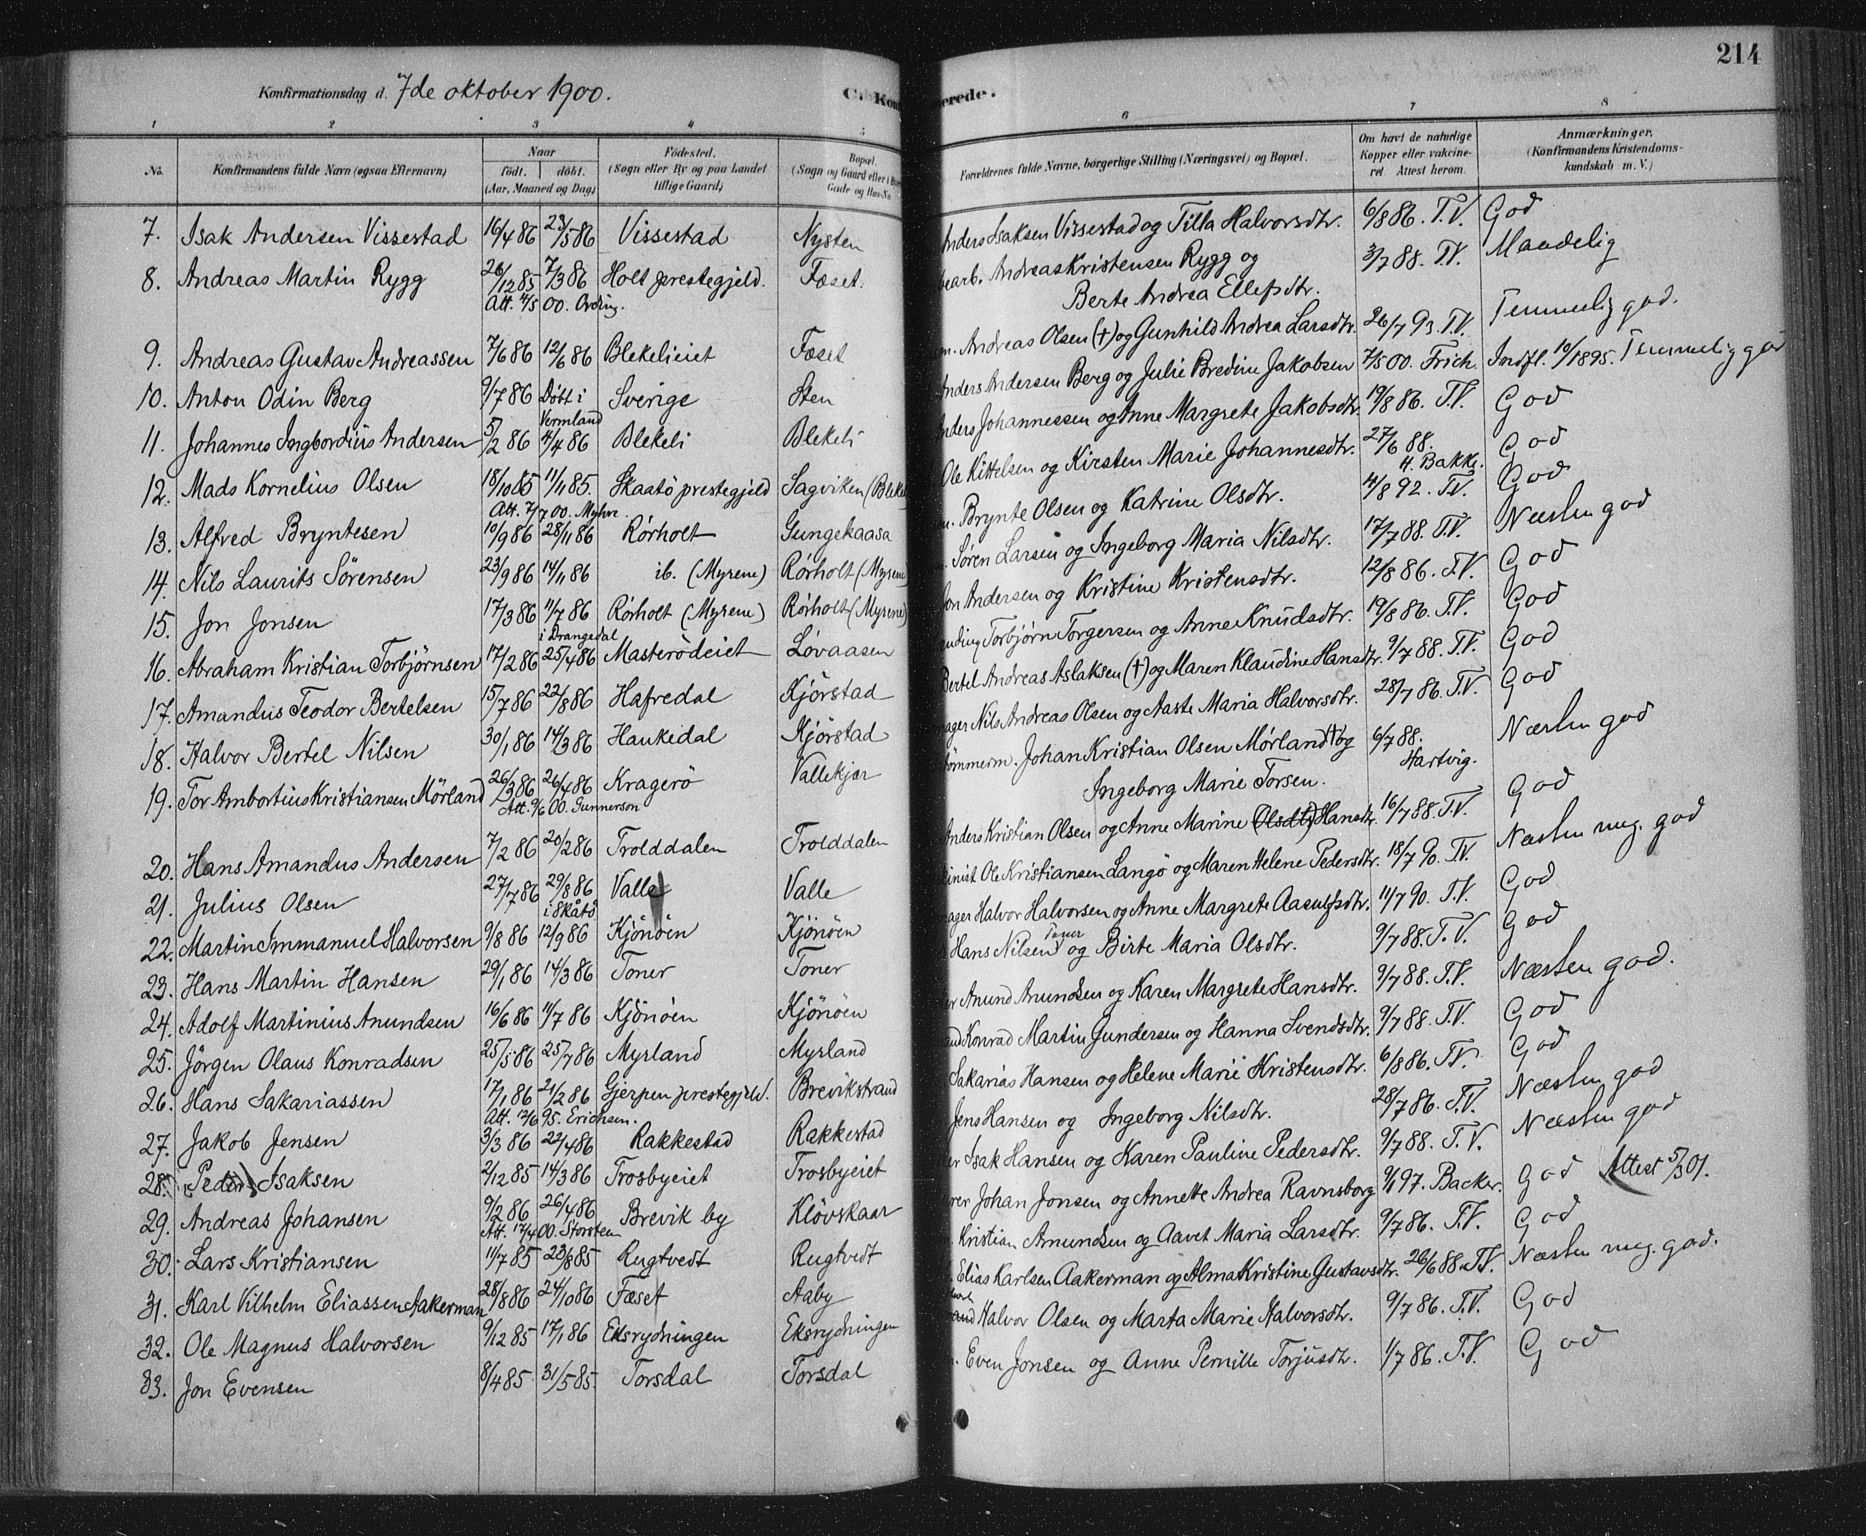 214
Konfirmationsdag d. 7de oktober 1900.
C. Kon
erede.
1 2 3 4 5 6 7 8
No. Konfirmandens fulde Navn (ogsaa Efternavn) Naar født. døbt. (Aar, Maaned og Dag) Fødested. (Sogn eller By og paa Landet tillige Gaard) Bopæl. (Sogn og Gaard eller i Gade og Hus-No
Forældrenes fulde Navne, borgerlige Stilling (Næringsvei) og Bopæl. Om havt de naturlige Kopper eller vakcineret. Attest herom. Anmærkninger. (Konfirmandens Kristendomskundskab m. V.)
7. Isak Andersen Vissestad 16/4 86 23/5 86 Vissestad Nysten Anders Isaksen Vissestad og Tilla Halvorsdtr. 6/8 86. T.V. God
8. Andreas Martin Rygg 26/12 85 7/3 86 Holt prestegjeld. Fæset. bearb. Andreas Kristensen Rygg og 3/7 88. T.V. Maadelig
Att. 4/5 00. Ording. Berte Andrea Ellefsdtr.
9. Andreas Gustav Andreassen 7/6 86 12/6 86 Blekelieiet Fæset m. Andreas Olsen (+) og Gunhild Andrea Larsdtr. 26/7 93. T.V. Temmelig god.
10. Anton Odin Berg 9/7 86 Døbt i Vermland Sverige Sten Anders Andersen Berg og Julie Bredine Jakobsen 7/5 00. Frich. Indfl. 10/1895. Temmelig god
11. Johannes Ingbordius Andersen 5/2 86 4/4 86 Blekeli Blekeli Anders Johannessen og Anne Margrete Jakobsdtr. 19/8 86. T.V. God
12. Mads Kornelius Olsen 18/10 85 11/11 85. Skaatö prestegjeld Sagviken (Bleke Ole Kittelsen og Kirsten Marie Johannesdtr. 27/6 88. H. Bakke. God
Att. 7/7 00. Myhre.
13. Alfred Bryntesen 10/9 86 28/11 86 Rörholt Gungekaasa m. Brynte Olsen og Katrine Olsdtr. 4/8 92. T.V. God
14. Nils Laurits Sörensen 23/9 86 14/11 86 ib. (Myrene) Rörholt (Myrene) Søren Larsen og Ingeborg Maria Nilsdtr. 17/7 88. T.V. Næsten god
15. Jon Jonsen 17/3 86 11/7 86 Rörholt (Myrene) Rörholt (Myrene) Jon Andersen og Kristine Kristensdtr. 12/8 86. T.V. God
i Drangedal
16. Abraham Kristian Torbjörnsen 17/2 86 25/4 86 Masterödeiet Lövaasen Torbjörn Torgersen og Anne Knudsdtr. 19/8 86. T.V. God
17. Amandus Teodor Bertelsen 15/7 86 22/8 86 Hafredal Kjörstad Bertel Andreas Aslaksen (+) og Maren Klaudine Hansdtr. 9/7 88. T.V. God
18. Halvor Bertel Nilsen 30/1 86 14/3 86 Haukedal Kjörstad mager Nils Andreas Olsen og Aaste Maria Halvorsdtr. 28/7 86. T.V. God
19. Tor Ambortius Kristiansen Mörland 26/3 86 26/4 86 Kragerö Vallekjær tömmerm. Johan Kristian Olsen Mörland + og 6/7 88. Hartvig. Næsten god
Att. 9/6 00. Gunnerson Ingeborg Marie Torsen.
20. Hans Amandus Andersen 7/2 86 20/2 86 Trolddalen Trolddalen Anders Kristian Olsen og Anne Marine (Olsdtr) Hansdtr. 16/7 88. T.V. God
21. Julius Olsen 27/7 86 29/8 86 i Skåtö Valle Valle Ole Kristiansen Langö og Maren Helene Pedersdtr. 18/7 90. T.V. Næsten meg. god
22. Martin Immanuel Halvorsen 9/8 86 12/9 86 Kjönöen Kjönöen mager Halvor Halvorsen og Anne Margrete Aasulfsdtr. 11/7 90. T.V. God
23. Hans Martin Hansen 29/1 86 14/3 86 Toner Toner Hans Nilsen Toner og Birte Maria Olsdtr. 9/7 88. T.V. God
24. Adolf Martinius Anundsen 16/6 86 11/7 86 Kjönöen Kjönöen Anund Anundsen og Karen Margrete Hansdtr. 9/7 88. T.V. Næsten god.
25. Jörgen Olaus Konradsen 25/5 86 25/7 86 Myrland Myrland Konrad Martin Gundersen og Hanna Svendsdtr. 9/7 88. T.V. God
26. Hans Sakariassen 17/1 86 21/2 86 Gjerpen prestegjeld. Brevikstrand Sakarias Hansen og Helene Marie Kristensdtr. 6/8 86. T.V. God
Att. 12/6 95. Erichsen.
27. Jakob Jensen 3/3 86 22/4 86 Rakkestad Rakkestad Jens Hansen og Ingeborg Nilsdtr. 28/7 86. T.V. Næsten god
28. (Peder) Isaksen 2/12 85 14/3 86 Trosbyeiet Trosbyeiet Isak Hansen og Karen Pauline Pedersdtr. 9/7 88. T.V. Næsten god
29. Andreas Johansen 9/2 86 26/4 86 Brevik by Klövskaar Johan Jonsen og Annette Andrea Ravnsborg 9/1 97. Backer. God Attest 5/3 01.
Att. 17/4 00. Storsteen
30. Lars Kristiansen 11/7 85 23/8 85 Rugtvedt Rugtvedt Kristian Amundsen og Aavet Maria Larsdtr. 9/7 86. T.V. God
31. Karl Vilhelm Eliassen Aakerman 28/8 86 24/10 86 Fæset Aaby Elias Karlsen Aakerman og Alma Kristine Gustavsdtr. 26/6 88. T.V. Næsten meg. god.
32. Ole Magnus Halvorsen 9/12 85 17/1 86 Eksrydningen Eksrydningen Halvor Olsen og Marta Marie Halvorsdtr. 9/7 86. T.V. God
33. Jon Evensen 8/4 85 31/5 85 Torsdal Torsdal Even Jonsen og Anne Pernille Torjusdtr. 1/7 86. T.V. God